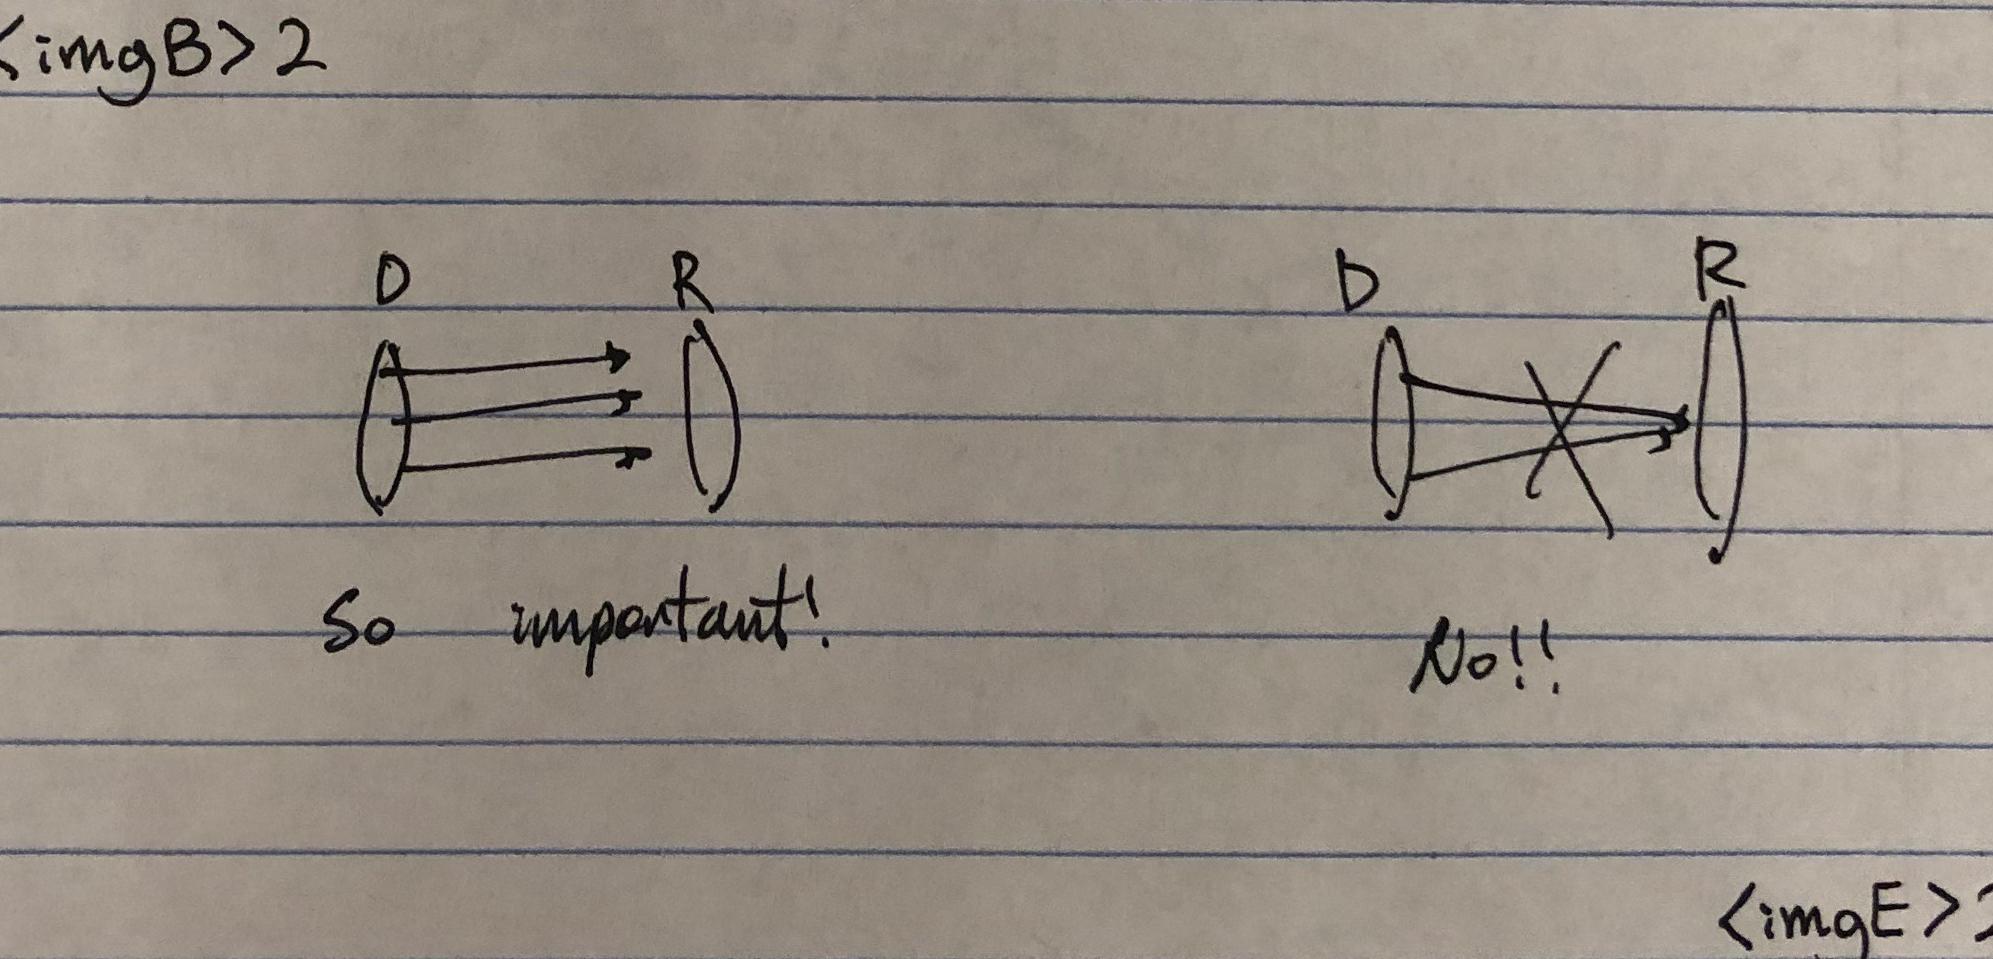 <imgB>2
D R D R
So important! No!!
<imgE>2